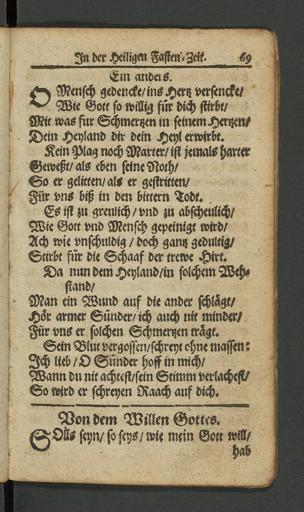 In der Heiligen Fasten-Zeit. 69
Ein anders.
O Mensch gedencke/ ins Hertz versencke/
Wie Gott so willig für dich stirbt/
Mit was fur Schmertzen in seinem Hertzen/
Dein Heyland dir dein Heyl erwirbt.
Kein Plag noch Marter/ ist jemals harter
Gewest/ als eben seine Noth/
So er gelitten/ als er gestritten/
Für vns biß in den bittern Todt.
Es ist zu greulich/ vnd zu abscheulich/
Wie Gott vnd Mensch gepeinigt wird/
Ach wie vnschuldig/ doch gantz gedultig/
Stirbt für die Schaaf der trewe Hirt.
Da nun dem Heyland/ in solchem Weh-
stand/
Man ein Wund auf die ander schlägt/
Hör armer Sünder/ ich auch nit minder/
Für vns er solchen Schmertzen trägt.
Sein Blut vergossen/ schreyt ohne massen:
Ich lieb/ O Sünder hoff in mich/
Wann du nit achtest/ sein Stimm verlachest/
So wird er schreyen Raach auf dich.
Von dem Willen Gottes.
Solls seyn/ so seys/ wie mein Gott will/
hab